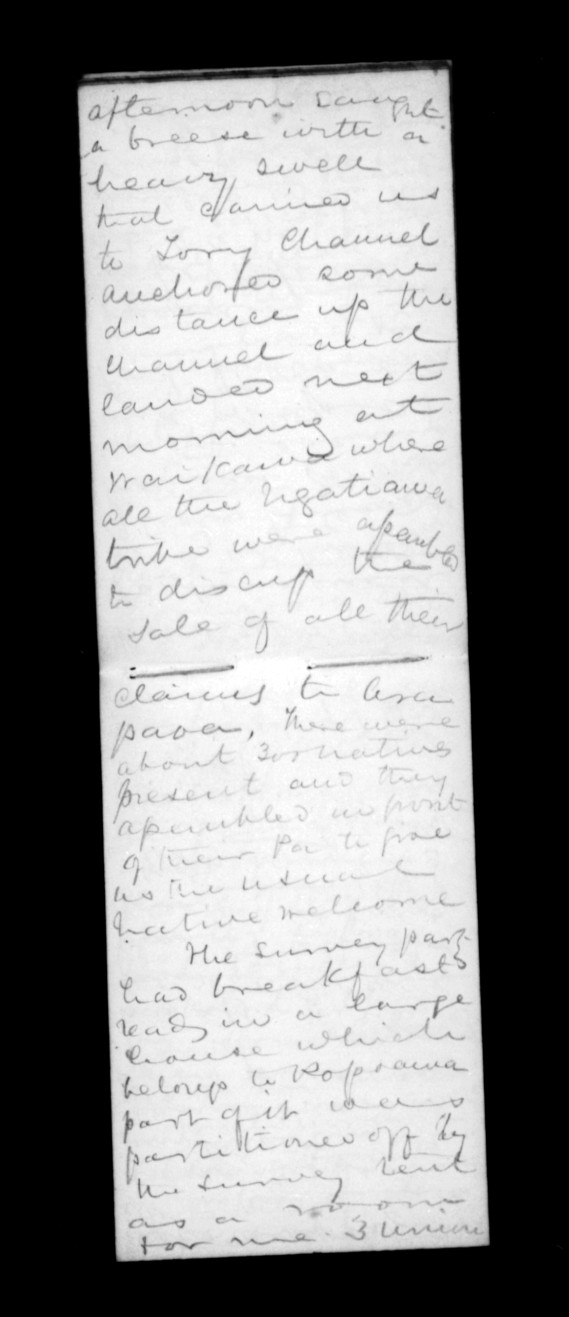 afternoon caught
a breese with a
heavy swell
that carried us
to Tory Channel
anchored some
distance up the
channel and
landed next
morning at
Waikawa where
all the Ngatiawa
tribe were assembled
to discuss the
sale of all their
claims to Ara
paoa, There were
about 300 natives
present and they
assembled in front
of their Pa to give
us the usual
native welcome
The survey party
had breakfast
ready in a large
house which
belongs to
part of it was
partitioned off by
the survey tent
as a room
for me. 3 Union